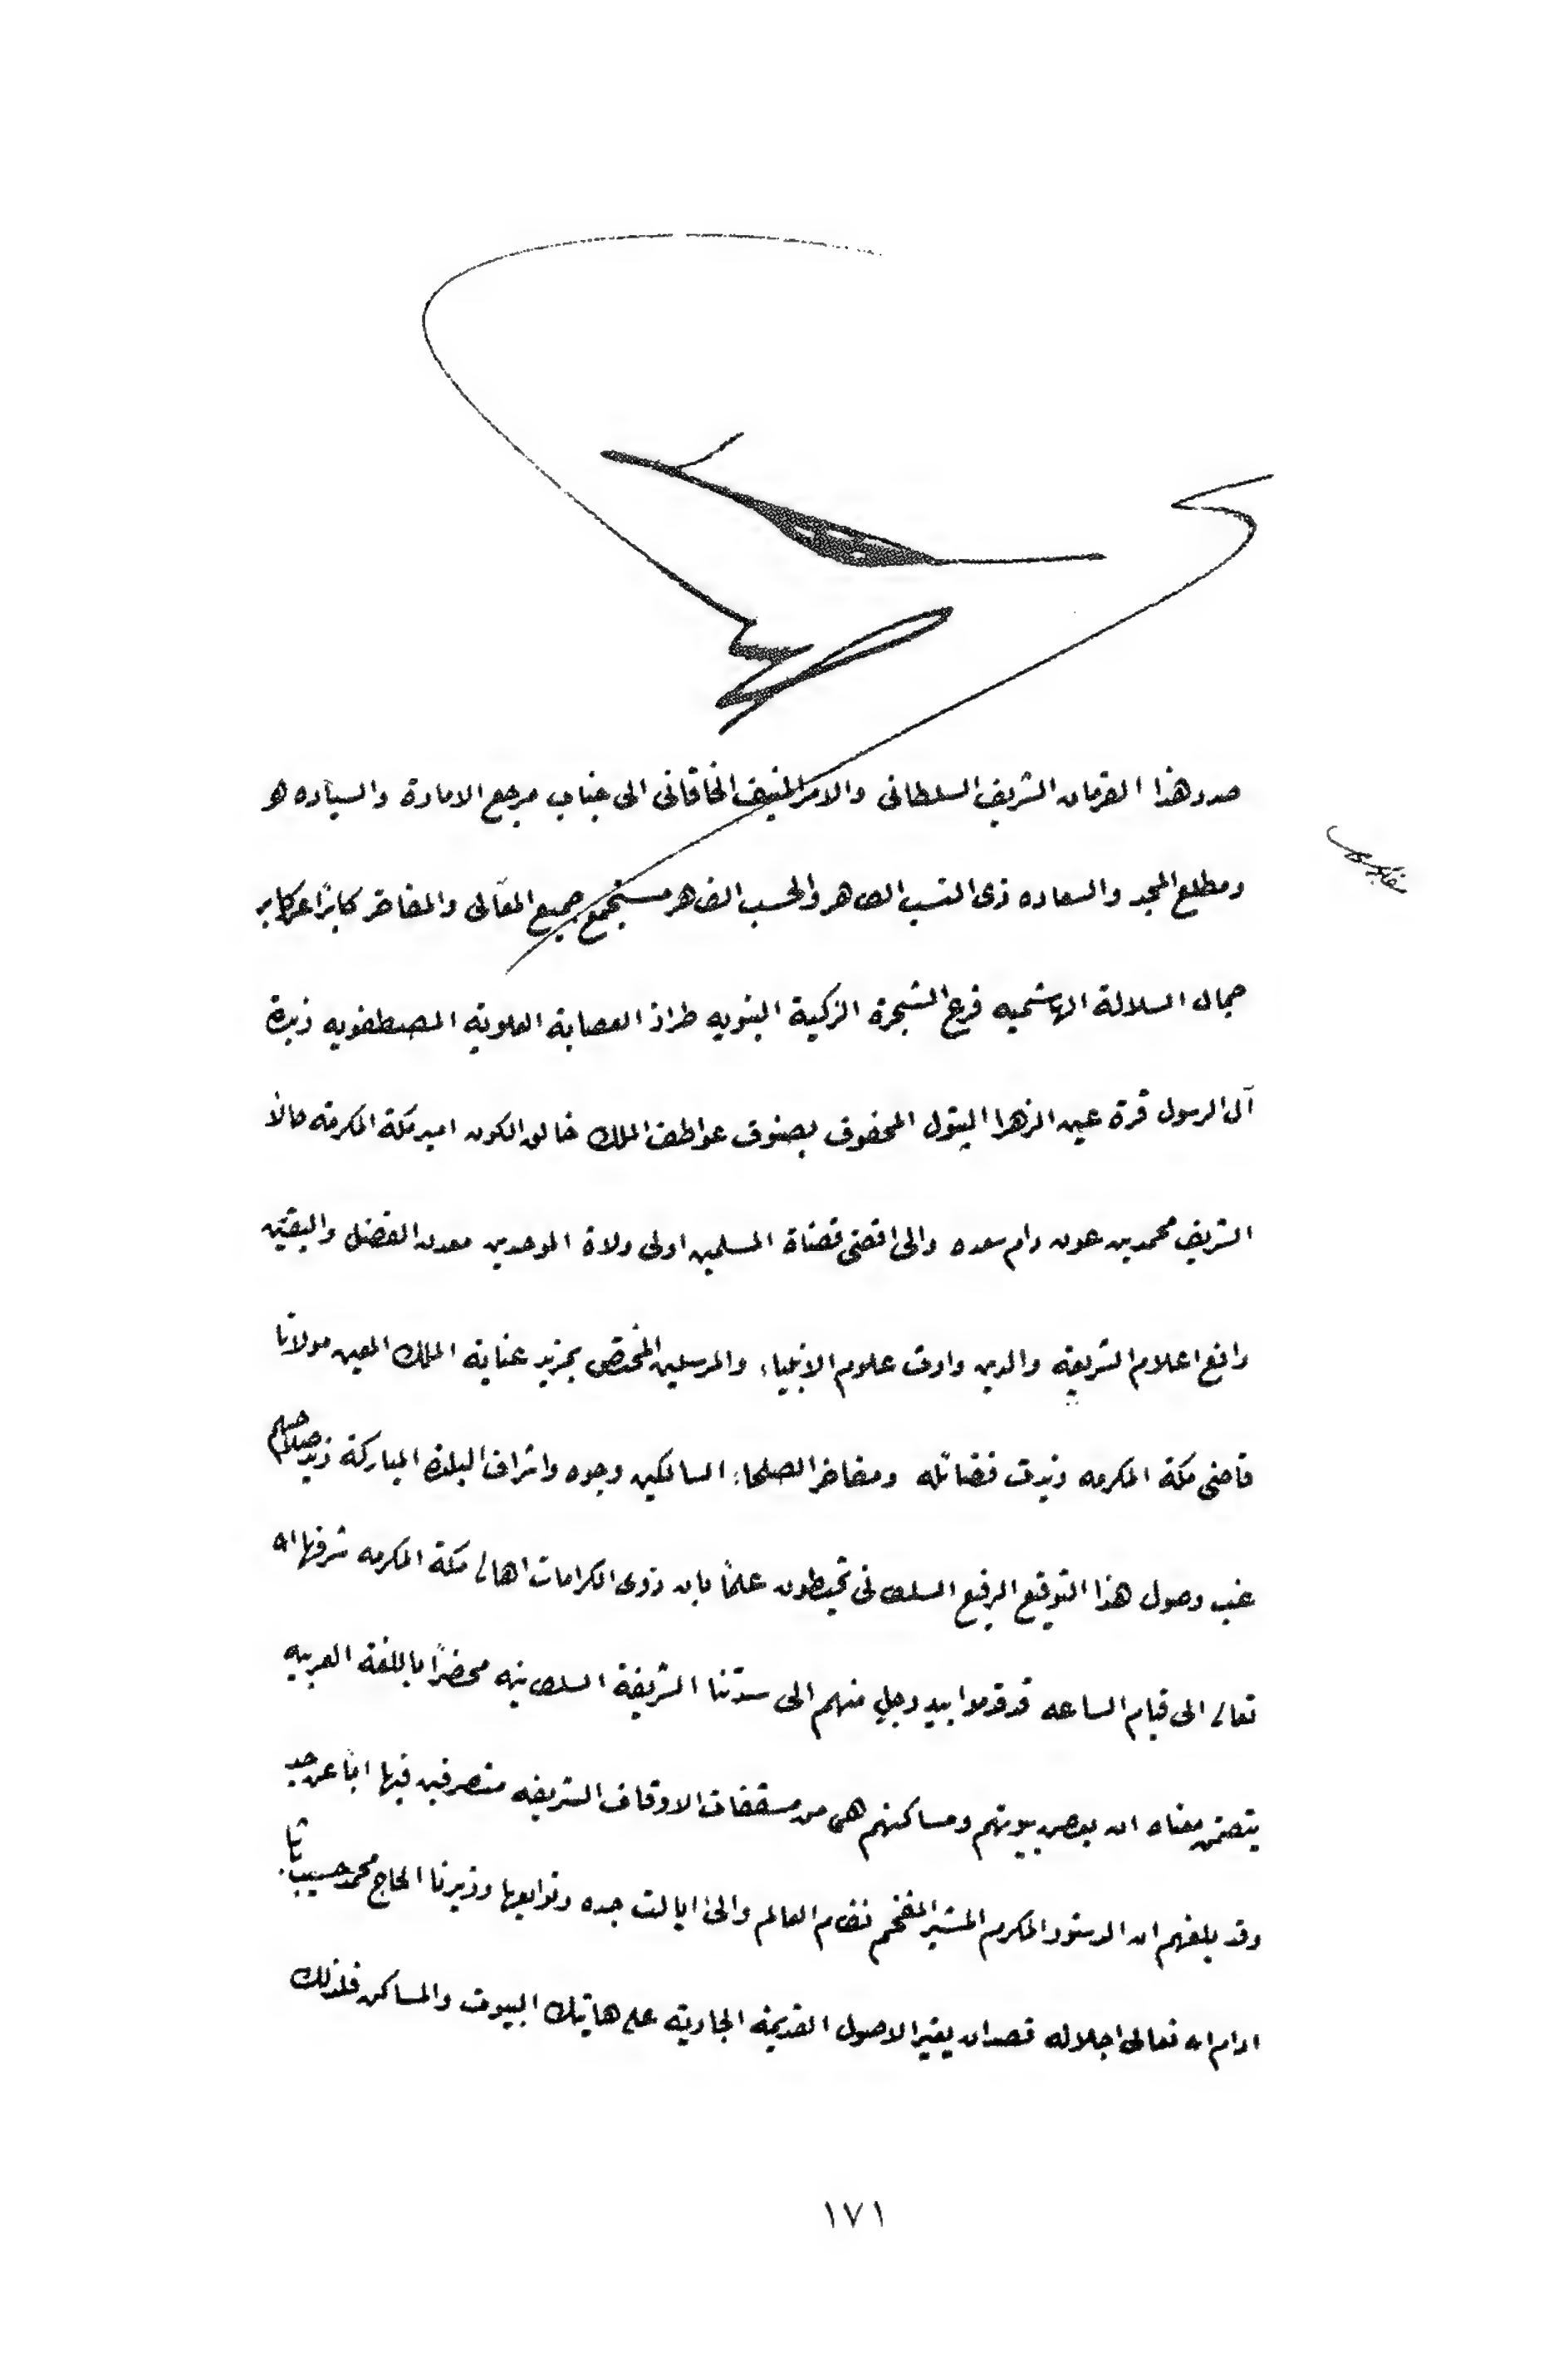 صدر هذا الفرمان الشريف السلطانى والامر المنيف الخاقانى الى جناب مرجع الامارة والسياده هو
ومطلع المجد والسعاده ذى النسب الطاهر والحسب الظاهر مستجمع جميع المعالى والمفاخر كابرًا عن كابر
جمال السلالة الهاشميه فرع الشجرة الزكية النبويه طراز العصابة العلوية المصطفويه زبدة
آل الرسول قرة عين الزهرا البتول المحفوف بصنوف عواطف الملك خالق الكون امير مكة المكرمة حالاً
الشريف محمد بن عون دام سعده والى اقضى قضاة المسلمين اولى ولاة الموحدين معدن الفضل واليقين
رافع اعلام الشريعة والدين وارث علوم الانبياء والمرسلين المختص بمزيد عناية الملك المعين مولانا
قاضى مكة المكرمه زيدت فضائله ومفاخر الصلحاء السالكين وجوه واشراف البلدة المباركة زيد صلاحهم
غب وصول هذا التوقيع الرفيع السلطانى تحيطون علمًا بان ذوى الكرامات اهالى مكة المكرمه شرفها الله
تعالى الى قيام الساعه قد قدموا بيد رجل منهم الى سدتنا الشريفة السلطانيه محضرًا باللغة العربيه
يتضمن معناه ان بعض بيوتهم ومساكنهم هى من مسقفات الاوقاف الشريفه متصرفين فيها ابًا عن جد
وقد بلغهم ان الدستور المكرم المشير المفخم نظام العالم والى ايالت جده وتوابعها وزيرنا الحاج محمد حسيب باشا
ادام الله تعالى اجلاله قصد ان يغير الاصول القديمة الجارية على هاتيك البيوت والمساكن فلذلك
١٧١